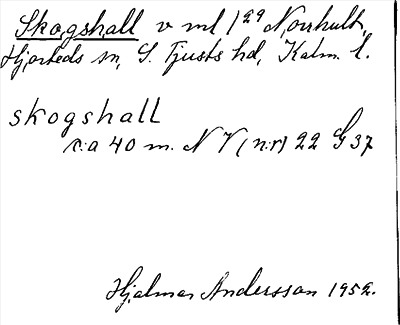 Skogshall v ml 1²⁹ Norrhult,
Hjorteds sn, S. Tjusts hd, Kalm. l.
skogshall
c:a 40 m. N V (n:r) 22 G 37
Hjalmar Andersson 1952.